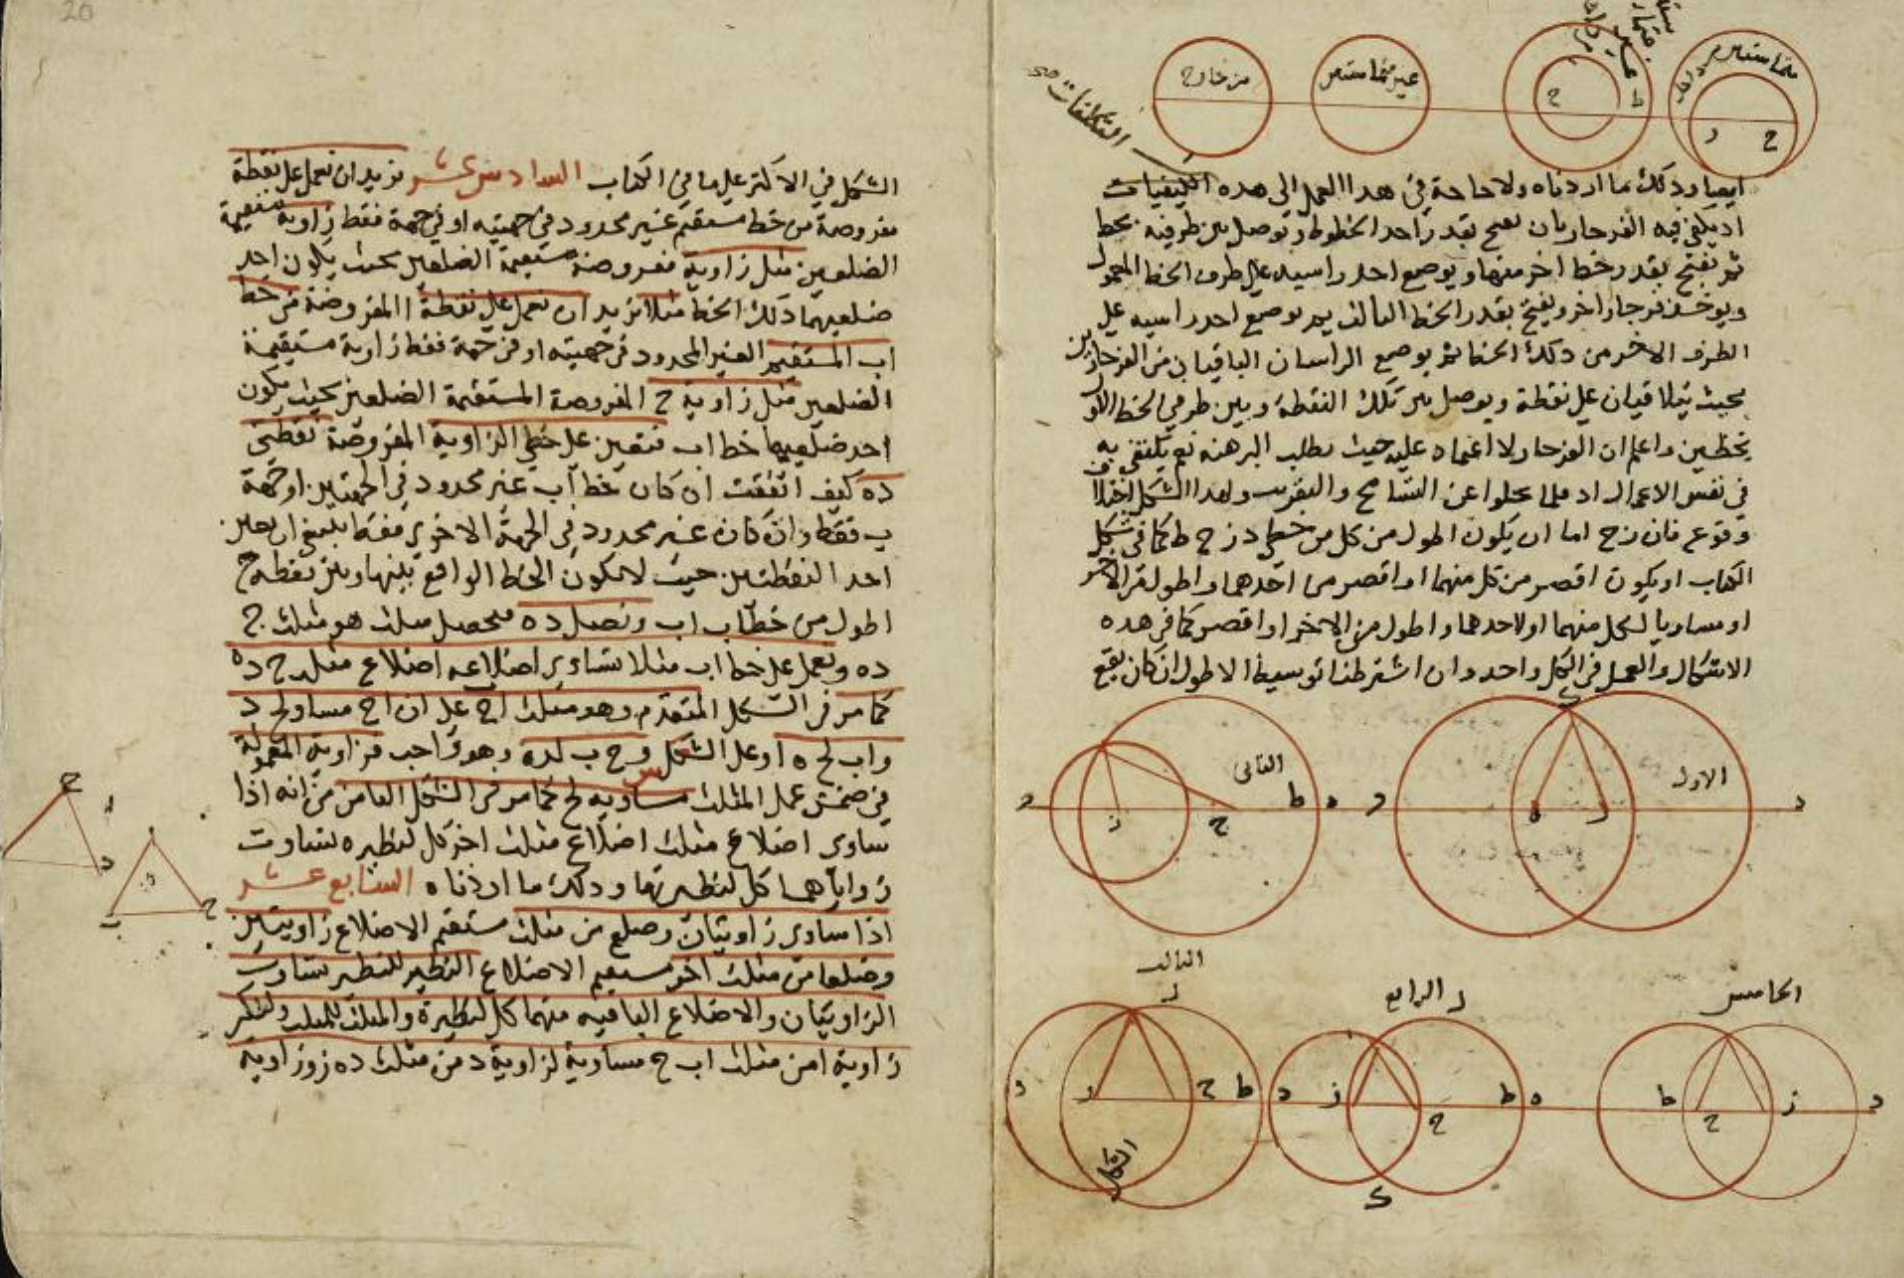 من خارج
غير متماستين
ح
ط
متماستين
د
ح
التكلفات صح
ايضا وذلك ما اردناه ولا حاجة في هذا العمل الى هذه
اذ يكفي فيه الفرجار بان يفتح بقدر احد الخطوط ويوصل بين طرفيه بخط
ثم يفتح بقدر خط اخر منها ويوضع احد راسيه على طرف الخط المعمول
ويوخذ فرجار اخر ويفتح بقدر الخط الثالث ثم يوضع احد راسيه على
الطرف الاخر من ذلك الخط ثم يوضع الراسان الباقيان من الفرجارين
بحيث يتلاقيان على نقطة ويوصل بين تلك النقطة وبين طرفي الخط الاول
بخطين واعلم ان الفرجار لا اعتماد عليه حيث يطلب البرهنة نعم يكتفى به
في نفس الاعمال اذ قلما يخلوا عن التسامح والتقريب ولهذا الشكل اختلاف
وقوع فان زح اما ان يكون اطول من كل من خطي د ز ح ط كما في شكل
الكتاب او يكون اقصر من كل منهما او اقصر من احدهما واطول من الاخر
او مساويا لكل منهما او لاحدهما واطول من الاخر او اقصر كما في هذه
الاشكال والعمل في الكل واحد وان اشترطنا توسيط الاطول ان كان يقع
الاول
الثاني
ط
ه
ح
ز
د
الثالث
الرابع
الخامس
ز
ح
ط
د
ز
ح
ط
ه
ط
ح
ز
د
الشكل في الاكثر على ما في الكتاب السادس عشر نريد ان نعمل على نقطة
مفروضة من خط مستقيم غير محدود في جهتيه او في جهة فقط زاوية مستقيمة
الضلعين مثل زاوية مفروضة مستقيمة الضلعين بحيث يكون احد
ضلعيهما ذلك الخط مثلا نريد ان نعمل على نقطة ا المفروضة من خط
اب المستقيم الغير المحدود في جهتيه او في جهة فقط زاوية مستقيمة
الضلعين مثل زاوية ح المفروضة المستقيمة الضلعين بحيث يكون
احد ضلعيهما خط اب فنعين على خطي الزاوية المفروضة نقطتي
د ه كيف اتفقت ان كان خط اب غير محدود في الجهتين او جهة
ب فقط وان كان غير محدود في الجهة الاخرى فقط فينبغي ان يعين
احد النقطتين حيث لا يكون الخط الواقع بينها وبين نقطة ح
اطول من خط اب ونصل د ه فيحصل مثلث هو مثلث ح
د ه ونعمل على خط اب مثلثا تساوي اضلاعه اضلاع مثلث ح د ه
كما مر في الشكل المتقدم وهو مثلث اح على ان اح مساو لح د
واب لح ه او على الشكل وح ب لده وهو واجب فزاوية ا المعمولة
في ضمن عمل المثلث مساوية لح كما مر في الشكل الثامن من انه اذا
تساوى اضلاع مثلث اضلاع مثلث اخر كل لنظيره تساوت
زواياهما كل لنظيرتها وذلك ما اردناه السابع عشر
اذا ساوى زاويتان وضلع من مثلث مستقيم الاضلاع زاويتين
وضلعا من مثلث اخر مستقيم الاضلاع النظير للنظير تساوت
الزاويتان والاضلاع الباقية منهما كل لنظيره والمثلث للمثلث وليكن
زاوية ا من مثلث اب ح مساوية لزاوية د من مثلث د ه ز وزاوية
ح
ه
ا
ب
ح
20